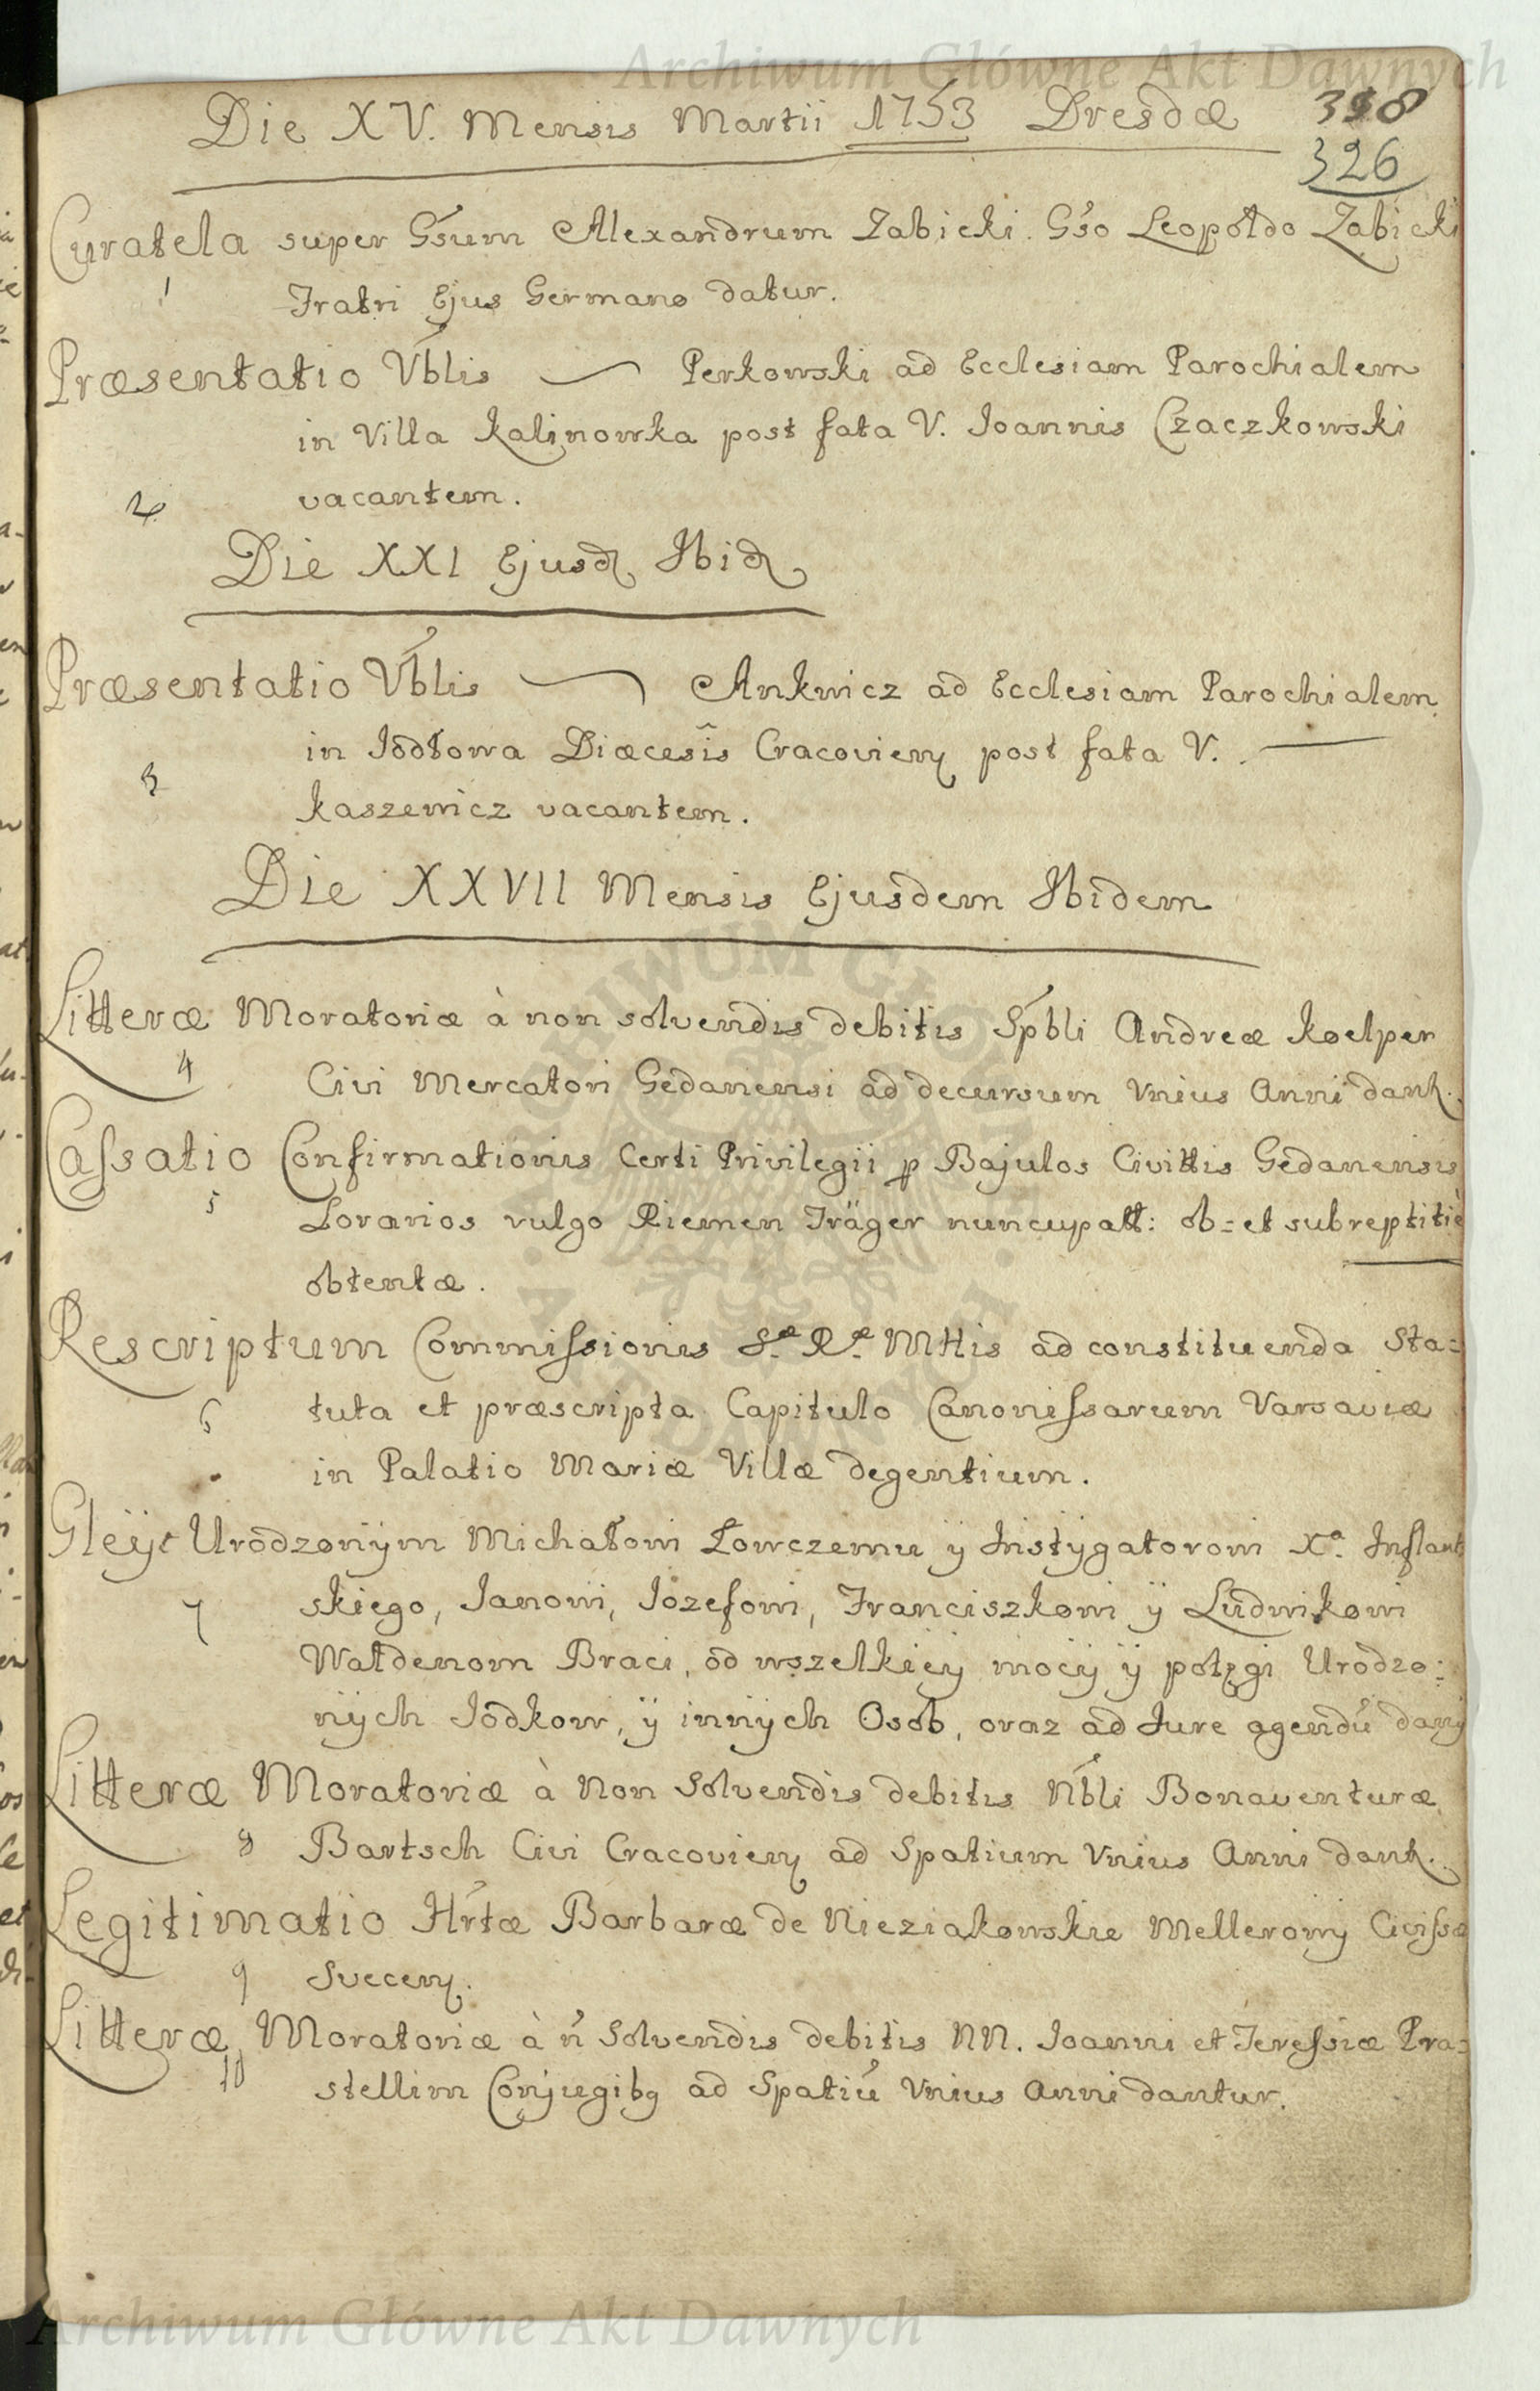 Archiwum Główne Akt Dawnych
Die XV. Mensis Martii 1753 Dresdæ 318
326
Curatela super Gsum Alexandrum Zabicki. Gso Leopoldo Zabicki
1 Fratri Ejus Germano datur.
Præsentatio Vblis — Perkowski ad Ecclesiam Parochialem
in Villa Kalinowka post fata V. Joannis Czaczkowski
2 vacantem.
Die XXI Ejusd Ibid
Præsentatio Vblis — Ankwicz ad Ecclesiam Parochialem
in Jodłowa Diæcesis Cracovien post fata V. —
3 Kaszewicz vacantem.
Die XXVII Mensis Ejusdem Ibidem
Litteræ Moratoriæ à non solvendis debitis Spbli Andreæ Koelper
4 Civi Mercatori Gedanensi ad decursum Vnius Anni dant.
Cassatio Confirmationis Certi Privilegii p Bajulos Civittis Gedanensis
5 Lorarios vulgo Riemen Träger nuncupatt: ob= et subreptitiè
obtentæ.
Rescriptum Commissionis S.æ R.æ Mttis ad constituenda Sta=
6 tuta et præscripta Capitulo Canonissarum Varsaviæ
in Palatio Mariæ Villæ degentium.
Gleÿt Urodzonÿm Michałowi Łowczemu ÿ Instÿgatorowi Xa. Inflant
7 skiego, Janowi, Jozefowi, Franciszkowi ÿ Ludwikowi
Wałdenom Braci, od wszelkieÿ mocÿ ÿ potęgi Urodzo=
nÿch Jodkow, ÿ innÿch Osob, oraz ad Jure agendu danÿ
Litteræ Moratoriæ à Non Solvendis debitis Nbli Bonaventuræ
8 Bartsch Civi Cracovien ad Spatium Vnius Anni dant.
Legitimatio Hrtæ Barbaræ de Nieziakowskie Mellerowÿ Civissæ
9 Svecen.
Litteræ Moratoriæ à ñ Solvendis debitis NN. Joanni et Teressiæ Pra=
10 stellim Conjugibq ad Spatiu Vnius Anni dantur.
ARCHIWUM GŁÓWNE
AKT DAWNYCH
Archiwum Główne Akt Dawnych